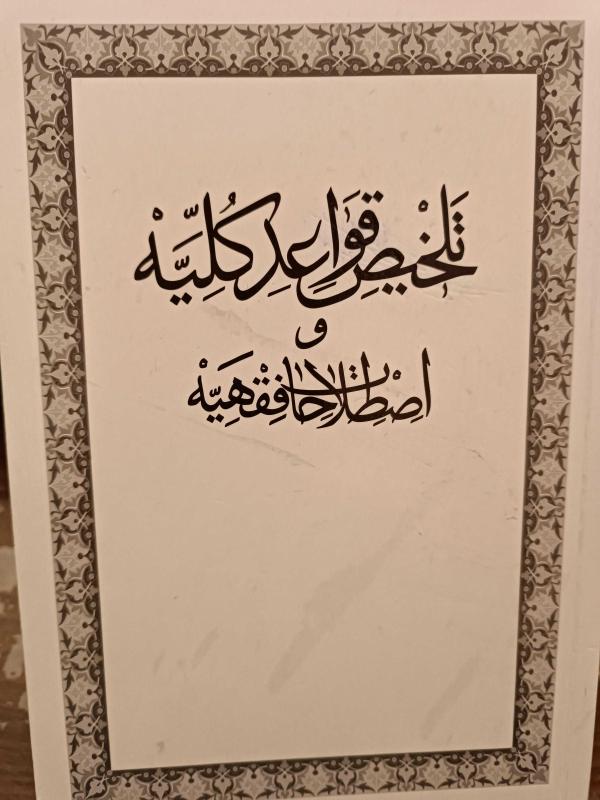 تَلْخِيصِ قَوَاعِدِ كُلِّيَّهْ
و
اِصْطِلَاحَاتِ فِقْهِيَّهْ